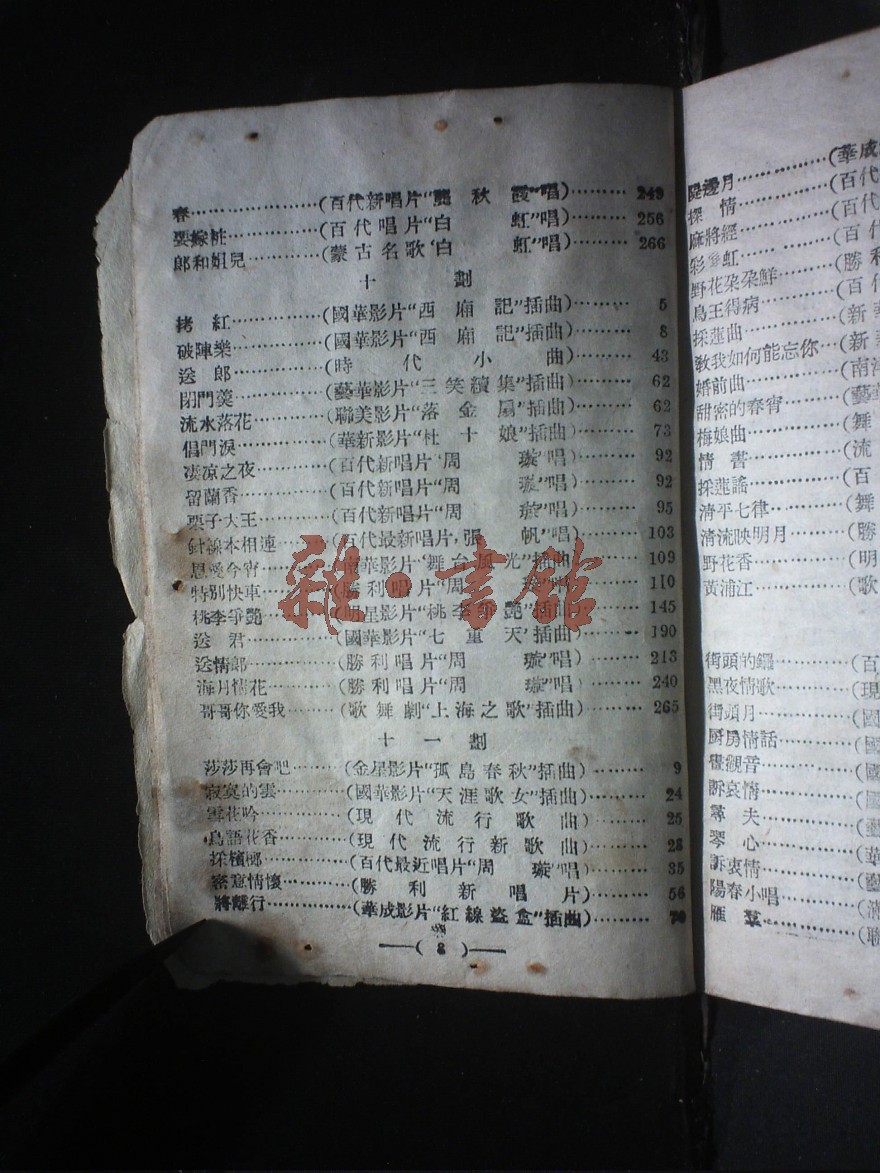 春……………(百代新唱片“龔秋霞”唱)………249
要嫁粧………(百代唱片“白虹”唱)………256
郎和姐兒……(蒙古名歌‘白虹”唱)………266
十劃
拷紅…………(國華影片“西廂記”插曲)………5
破陣樂………(國華影片“西廂記”插曲)………8
送郎…………(時代小曲)………43
閉門羹………(藝華影片“三笑續集”插曲)………62
流水落花……(聯美影片“落金扇”插曲)………62
倡門淚………(華新影片“杜十娘”插曲)………73
凄凉之夜……(百代新唱片‘周璇’唱)………92
留蘭香………(百代新唱片“周璇”唱)………92
栗子大王……(百代新唱片“周璇”唱)………95
針線本相連……(百代最新唱片,張帆”唱)………103
恩愛今宵………(南華影片‘舞台風光”插曲)………109
特別快車………(勝利唱片“周璇”唱)………110
桃李爭艷………(明星影片“桃李爭艷”插曲)………145
送君…………(國華影片“七重天’插曲)………190
送情郎………(勝利唱片“周璇”唱)………213
海月情花………(勝利唱片“周璇”唱)………240
哥哥你愛我……(歌舞劇“上海之歌”插曲)………265
十一劃
莎莎再會吧……(金星影片“孤島春秋”插曲)………9
寂寞的雲………(國華影片“天涯歌女”插曲)………24
雪花吟………(現代流行歌曲)………25
鳥語花香………(現代流行新歌曲)………28
採檳榔………(百代最近唱片“周璇’唱)………35
密意情懷………(勝利新唱片)………56
將離行………(華成影片“紅線盜盒”插曲)………70
—(8)—
堤邊月……………(華成
探情……………(百代
麻將經……………(百代
彩虹……………(百代
野花朶朶鮮………(勝利
鳥王得病…………(百代
採蓮曲……………(新華
敎我如何能忘你…(新
婚前曲……………(南洋
甜密的春宵………(藝華
梅娘曲……………(舞
情書……………(流
採蓮謠……………(百
清平七律…………(舞
清流映明月………(勝
野花香……………(明
黃浦江……………(歌
街頭的鑼…………(百
黑夜情歌…………(現
街頭月……………(國
厨房情話…………(國
畫觀音……………(國
訴哀情……………(國
尋夫……………(藝
琴心……………(華
訴衷情……………(藝
陽春小唱…………(清
雁羣……………(聯
雜·書館